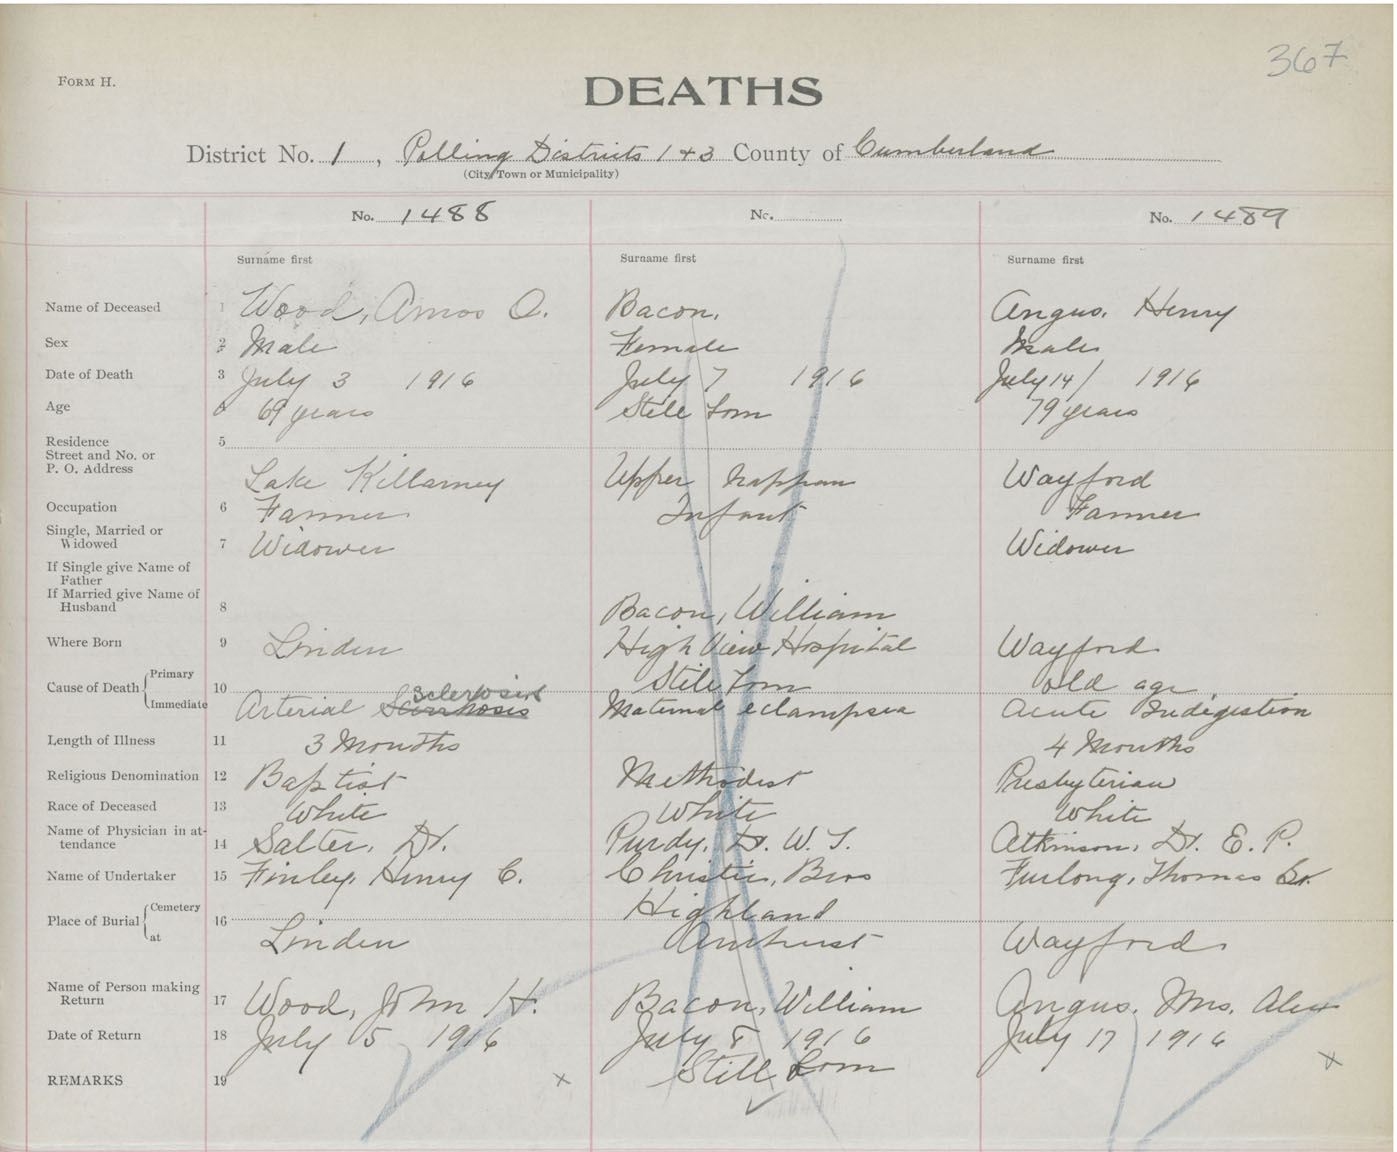 367
FORM H.
DEATHS
District No. 1, Polling Districts 1+3 County of Cumberland
(City Town or Municipality)
No. 1488 No. No. 1489
Surname first Surname first Surname first
Name of Deceased 1 Wood, Amos O. Bacon, Angus, Henry
Sex 2 Male Female Male
Date of Death 3 July 3 1916 July 7 1916 July 14/ 1916
Age 4 69 years Still born 79 years
Residence 5
Street and No. or
P. O. Address Lake Killarney Upper Nappan Wayford
Occupation 6 Farmer Infant Farmer
Single, Married or
Widowed 7 Widower Widower
If Single give Name of
Father
If Married give Name of
Husband 8 Bacon, William
Where Born 9 Linden High View Hospital Wayford
Cause of Death Primary 10 Still born old age
Immediate Arterial Sclerosis Maternal eclampsia Acute Indigestion
Length of Illness 11 3 Months 4 Months
Religious Denomination 12 Baptist Methodist Presbyterian
Race of Deceased 13 White White White
Name of Physician in at-
tendance 14 Salter, Dr. Purdy, Dr. W. T. Atkinson, Dr. E. P.
Name of Undertaker 15 Finley, Henry C. Christie, Bros Furlong, Thomas Sr.
Place of Burial Cemetery 16 Highland
at Linden Amherst Wayford
Name of Person making
Return 17 Wood, John H. Bacon, William Angus, Mrs. Alex
Date of Return 18 July 5 1916 July 8 1916 July 17 1916
REMARKS 19 x Still born x